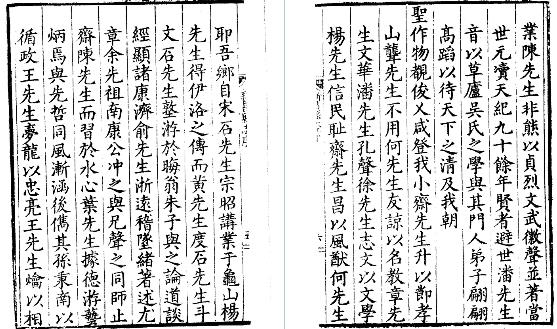 業陳先生非熊以貞烈文武徽聲並著當
世元瀆天紀九十餘年賢者避世潘先生
音以草廬吳氏之學與其門人弟子翩翩
高蹈以待天下之清及我朝
聖作物覩俊乂咸登我小齋先生升以節孝
山聾先生不用何先生友諒以名教章先
生文華潘先生孔聲徐先生志文以文學
楊先生信民耻齋先生昌以風猷何先生
耶吾鄉自宋石先生宗昭講業于龜山楊
先生得伊洛之傳而黃先生度石先生斗
文石先生墪游於晦翁朱子與之論道談
經顯諸康濟俞先生浙遠稽墜緒著述尤
章余先祖南康公冲之與兄聲之同師止
齋陳先生而習於水心葉先生據德游藝
炳焉與先哲同風漸涵後儁其孫秉南以
循政王先生夢龍以忠亮王先生爚以相